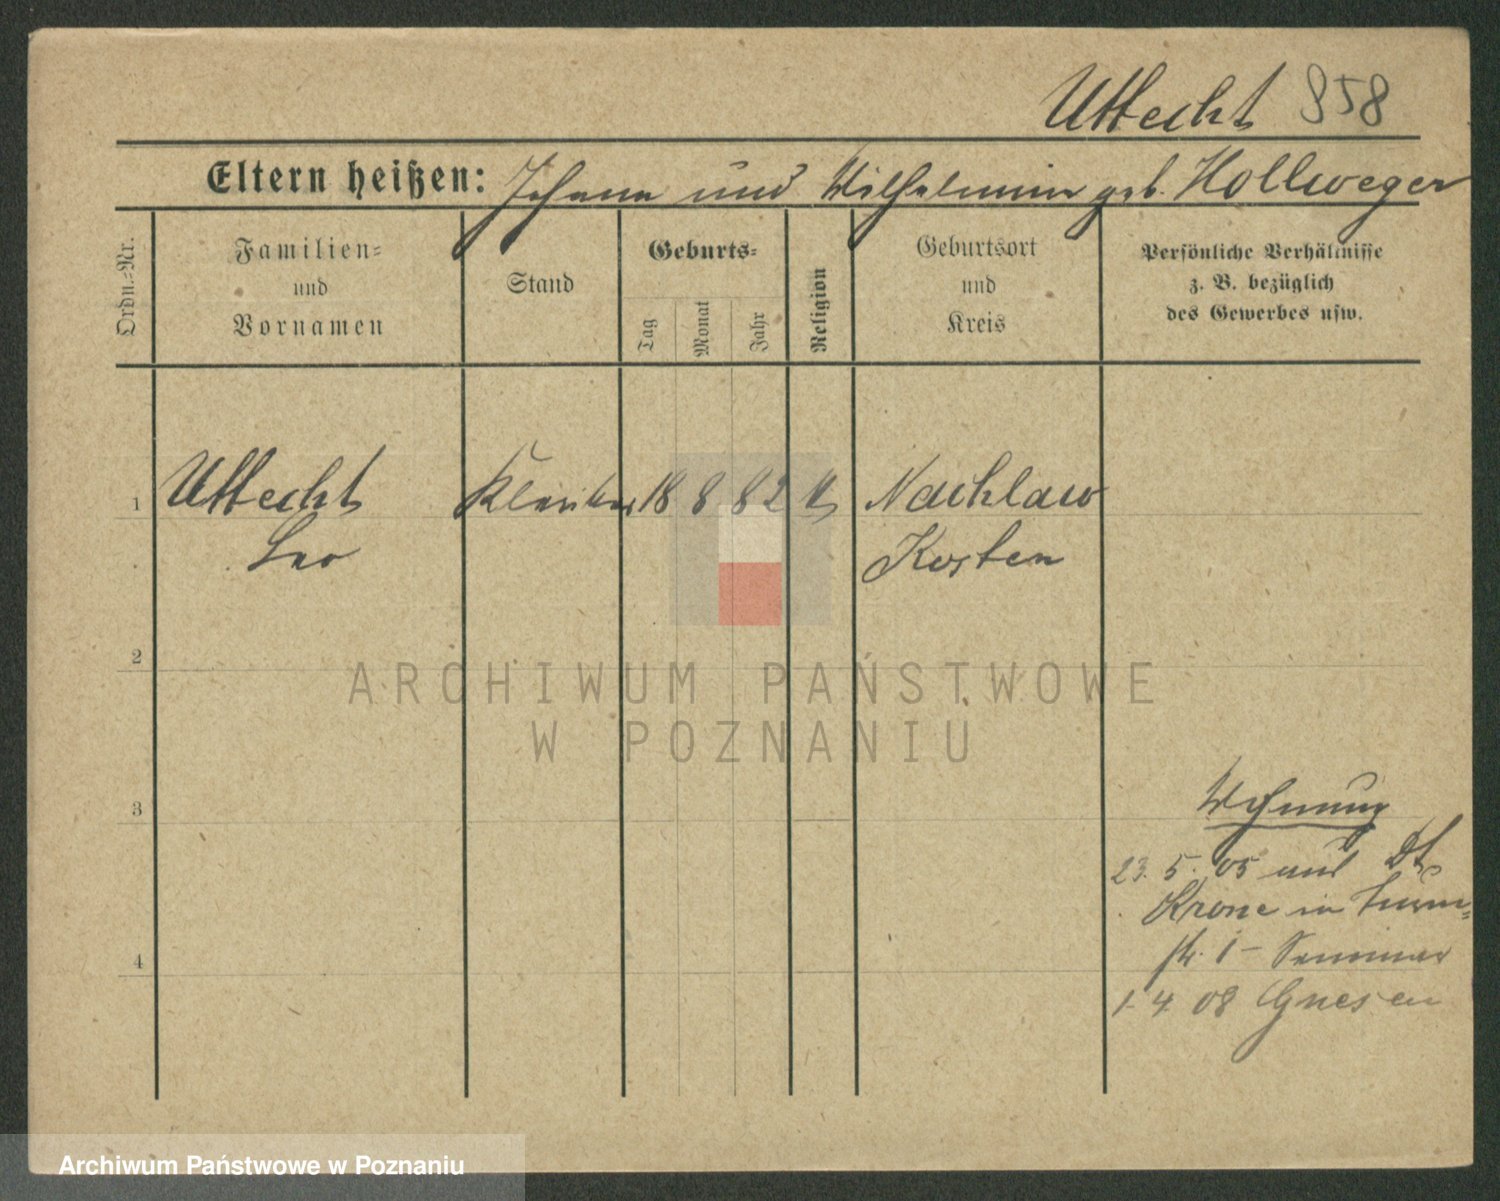 Uttecht 858
Eltern heißen: Johann und Wilhelmine geb. Hollweger
Ordn.=Nr.
Familien=
und
Vornamen
Stand
Geburts=
Tag
Monat
Jahr
Religion
Geburtsort
und
Kreis
Persönliche Verhältnisse
z. B. bezüglich
des Gewerbes usw.
1 Uttecht Kleriker 18 8 82 k Nachlaw
Leo Kosten
2
ARCHIWUM PAŃSTWOWE
W POZNANIU
3
Wohnung
23. 5. 05 aus Dt
Krone in
str. 1 - Seminar
4
1. 4. 08 Gnesen
Archiwum Państwowe w Poznaniu